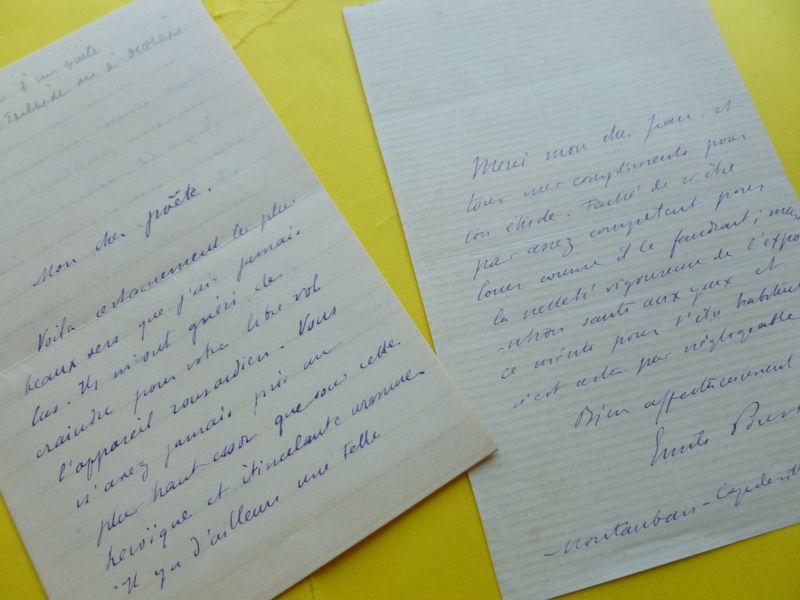 à un poète
Mon cher poète.
Voilà certainement les plus
beaux vers que j'aie jamais
lus. Ils m'ont guéri de
craindre pour votre libre vol
l'appareil ronsardien. Vous
n'avez jamais pris un
plus haut essor que sous cette
héroïque et étincelante armure.
Il y a d'ailleurs une telle
Merci mon cher Jean, et
tous mes compliments pour
ton étude. Fâché de n'être
pas assez compétent pour
louer comme il le faudrait ; mais
la netteté vigoureuse de l'expo
-sition saute aux yeux et
ce mérite pour t'être habituel
n'est certes pas négligeable
Bien affectueusement
Emile
Montauban -